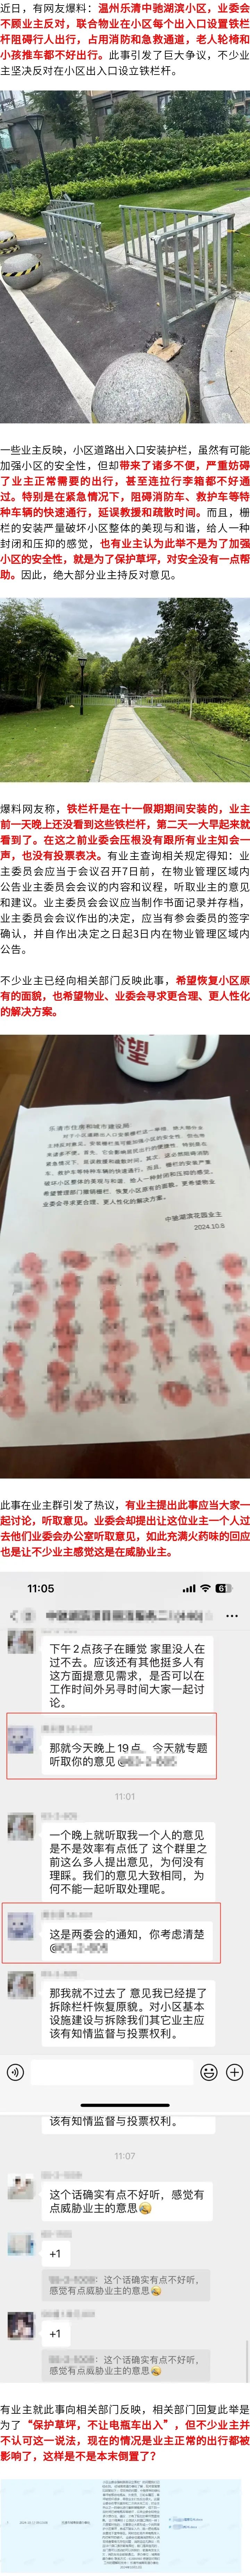 近日，有网友爆料：温州乐清中驰湖滨小区，业委会
不顾业主反对，联合物业在小区每个出入口设置铁栏
杆阻碍行人出行，占用消防和急救通道，老人轮椅和
小孩推车都不好出行。此事引发了巨大争议，不少业
主坚决反对在小区出入口设立铁栏杆。
一些业主反映，小区道路出入口安装护栏，虽然有可能
加强小区的安全性，但却带来了诸多不便，严重妨碍
了业主正常需要的出行，甚至连拉行李箱都不好通
过。特别是在紧急情况下，阻碍消防车、救护车等特
种车辆的快速通行，延误救援和疏散时间。而且，栅
栏的安装严重破坏小区整体的美观与和谐，给人一种
封闭和压抑的感觉，也有业主认为此举不是为了加强
小区的安全性，就是为了保护草坪，对安全没有一点帮
助。因此，绝大部分业主持反对意见。
爆料网友称，铁栏杆是在十一假期期间安装的，业主
前一天晚上还没看到这些铁栏杆，第二天一大早起来就
看到了。在这之前业委会压根没有跟所有业主知会一
声，也没有投票表决。有业主查询相关规定得知：业
主委员会应当于会议召开7日前，在物业管理区域内
公告业主委员会会议的内容和议程，听取业主的意见
和建议。业主委员会会议应当制作书面记录并存档，
业主委员会会议作出的决定，应当有参会委员的签字
确认，并自作出决定之日起3日内在物业管理区域内
公告。
不少业主已经向相关部门反映此事，希望恢复小区原
有的面貌，也希望物业、业委会寻求更合理、更人性化
的解决方案。
希望
乐清市住房和城市建设局
中驰湖滨花园业主
2024.10.8
此事在业主群引发了热议，有业主提出此事应当大家一
起讨论，听取意见。业委会却提出让这位业主一个人过
去他们业委会办公室听取意见，如此充满火药味的回应
也是让不少业主感觉这是在威胁业主。
11:05
下午2点孩子在睡觉 家里没人在
过不去。应该还有其他挺多人有
这方面提意见需求，是否可以在
工作时间外另寻时间大家一起讨
论。
那就今天晚上19点 今天就专题
听取你的意见
11:01
一个晚上就听取我一个人的意见
是不是效率有点低了 这个群里之
前这么多人提出意见，为何没有
理睬。我们的意见大致相同，为
何不能一起听取处理呢。
这是两委会的通知，你考虑清楚
那我就不过去了 意见我已经提了
拆除栏杆恢复原貌。对小区基本
设施建设与拆除我们其它业主应
该有知情监督与投票权利。
该有知情监督与投票权利。
11:07
这个话确实有点不好听，感觉有
点威胁业主的意思
+1
这个话确实有点不好听，
感觉有点威胁业主的意思
+1
这个话确实有点不好听，
感觉有点威胁业主的意思
有业主就此事向相关部门反映，相关部门回复此举是
为了“保护草坪，不让电瓶车出入”，但不少业主并
不认可这一说法，现在的情况是业主正常的出行都被
影响了，这样是不是本末倒置了？